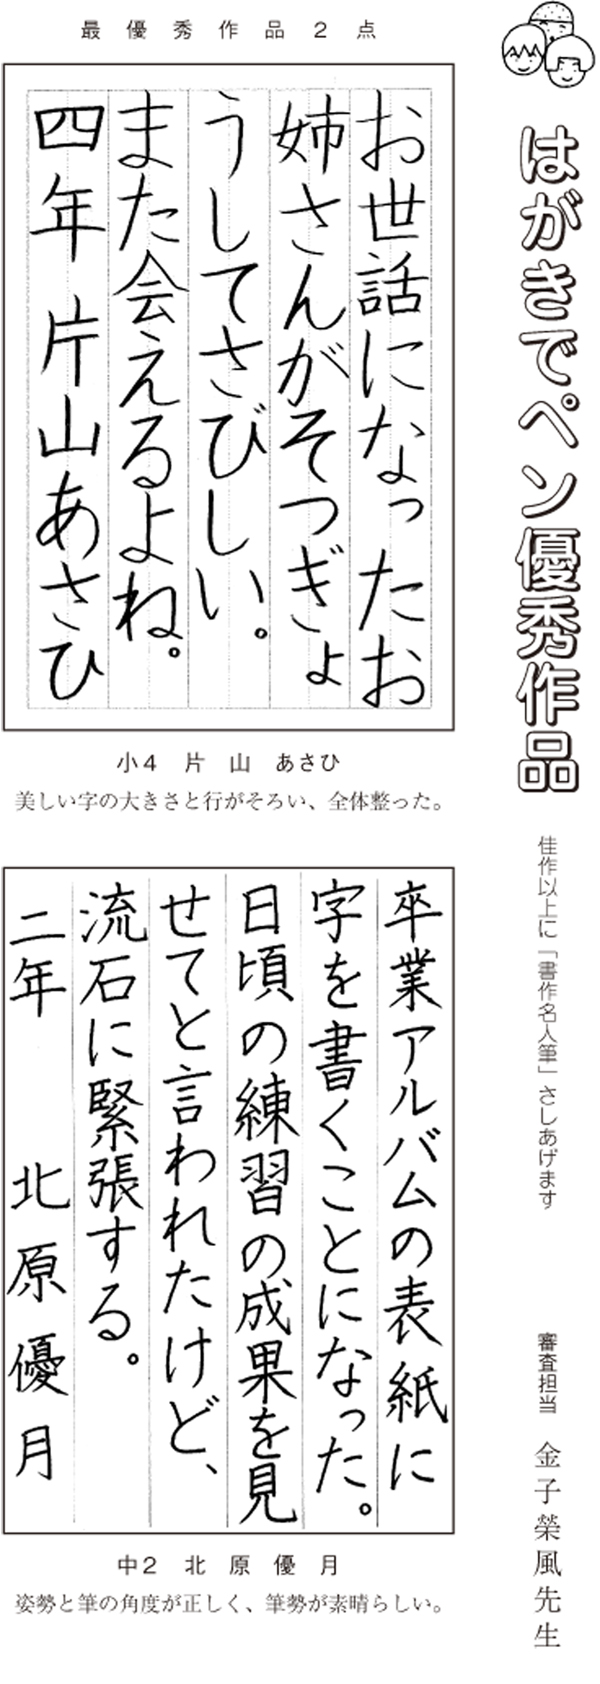 はがきでペン優秀作品
佳作以上に「書作名人筆」さしあげます
審査担当　金子榮風先生
最優秀作品２点
お世話になったお
姉さんがそつぎょ
うしてさびしい。
また会えるよね。
四年　片山あさひ
小４　片　山　あさひ
美しい字の大きさと行がそろい、全体整った。
卒業アルバムの表紙に
字を書くことになった。
日頃の練習の成果を見
せてと言われたけど、
流石に緊張する。
二年　北原優月
中２　北　原　優　月
姿勢と筆の角度が正しく、筆勢が素晴らしい。